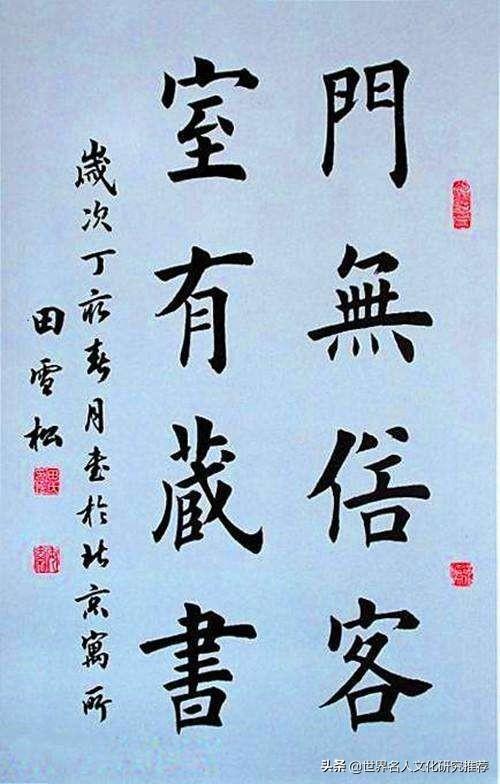 門無俗客
室有蔵書
歲次丁亥春月書於北京寓所
田雪松
头条 @世界名人文化研究推荐